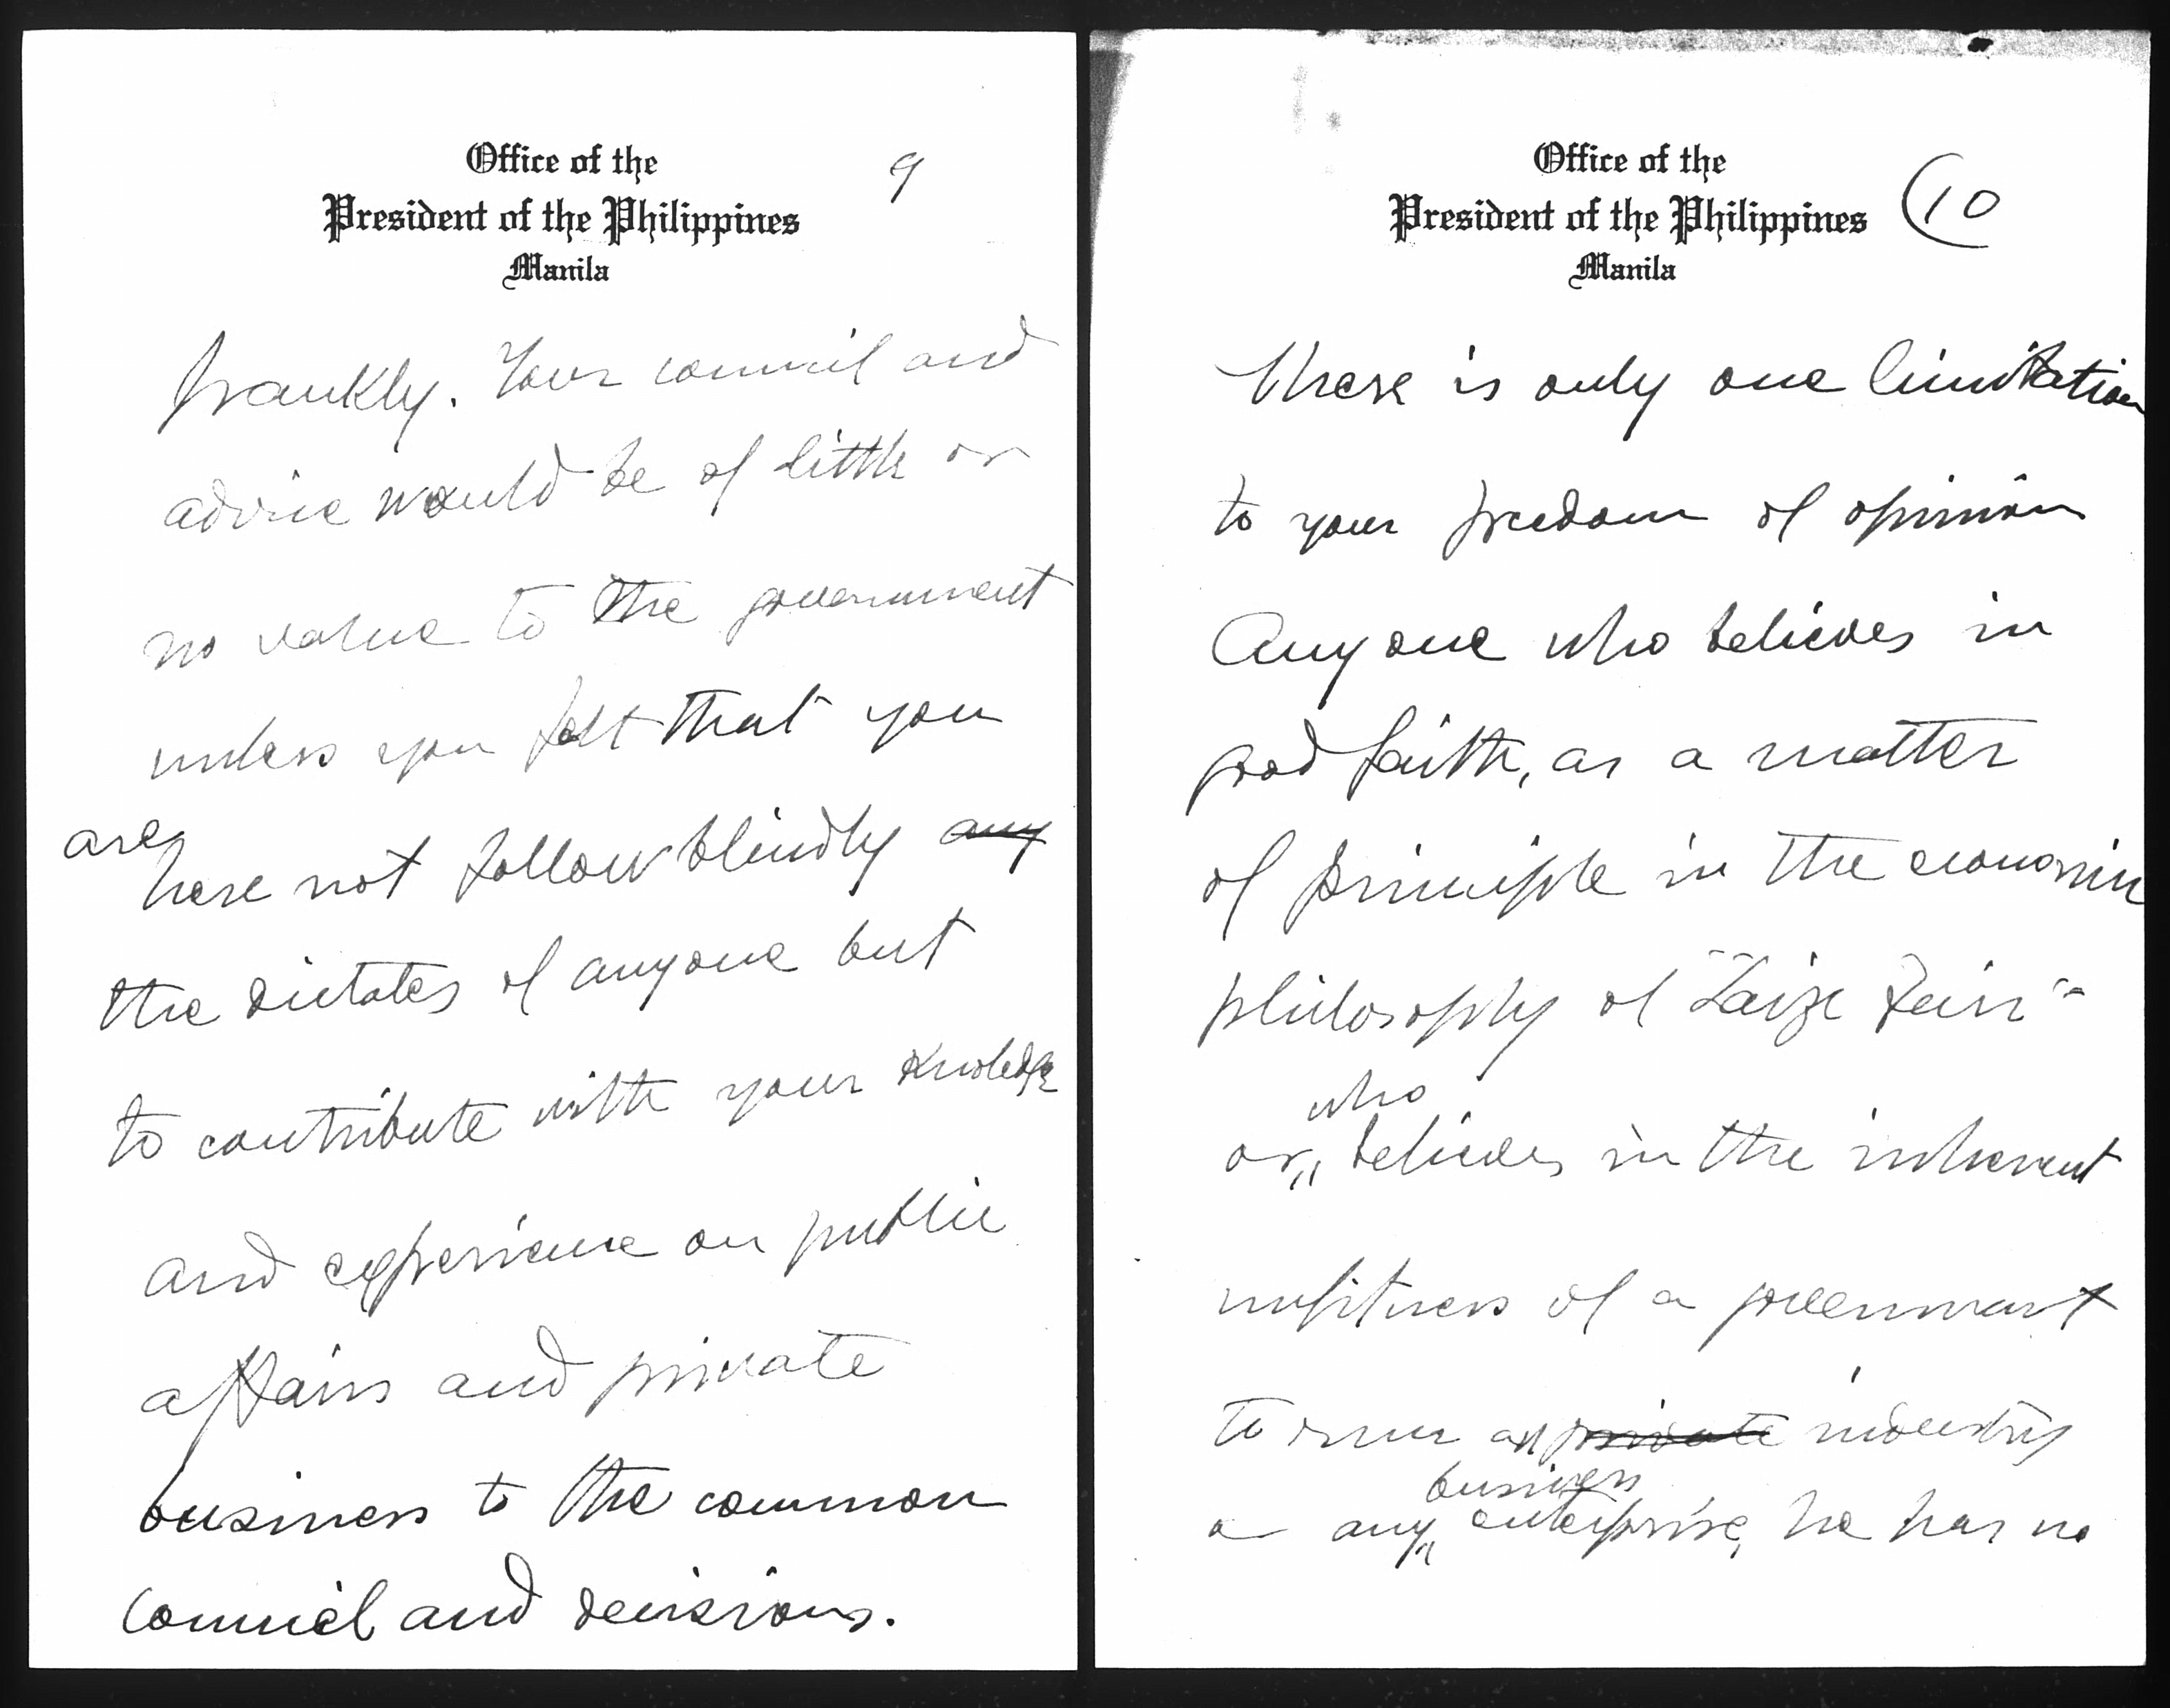 Office of the
President of the Philippines
Manila
9
frankly. Your council and
advice would be of little or
no value to the government
unless you felt that you
are
here not follow blindly any
the dictates of anyone but
to contribute with your knowledge
and experience on public
affairs and private
business to the common
council and decisions.
Office of the
President of the Philippines
Manila
10
There is only one limitation
to your freedom of opinion
Anyone who believes in
good faith, as a matter
of principle in the economic
philosophy of "Laize Fair"
who
or believes in the inherent
unfitness of a government
to run an private industry
business
or any enterprise, he has no